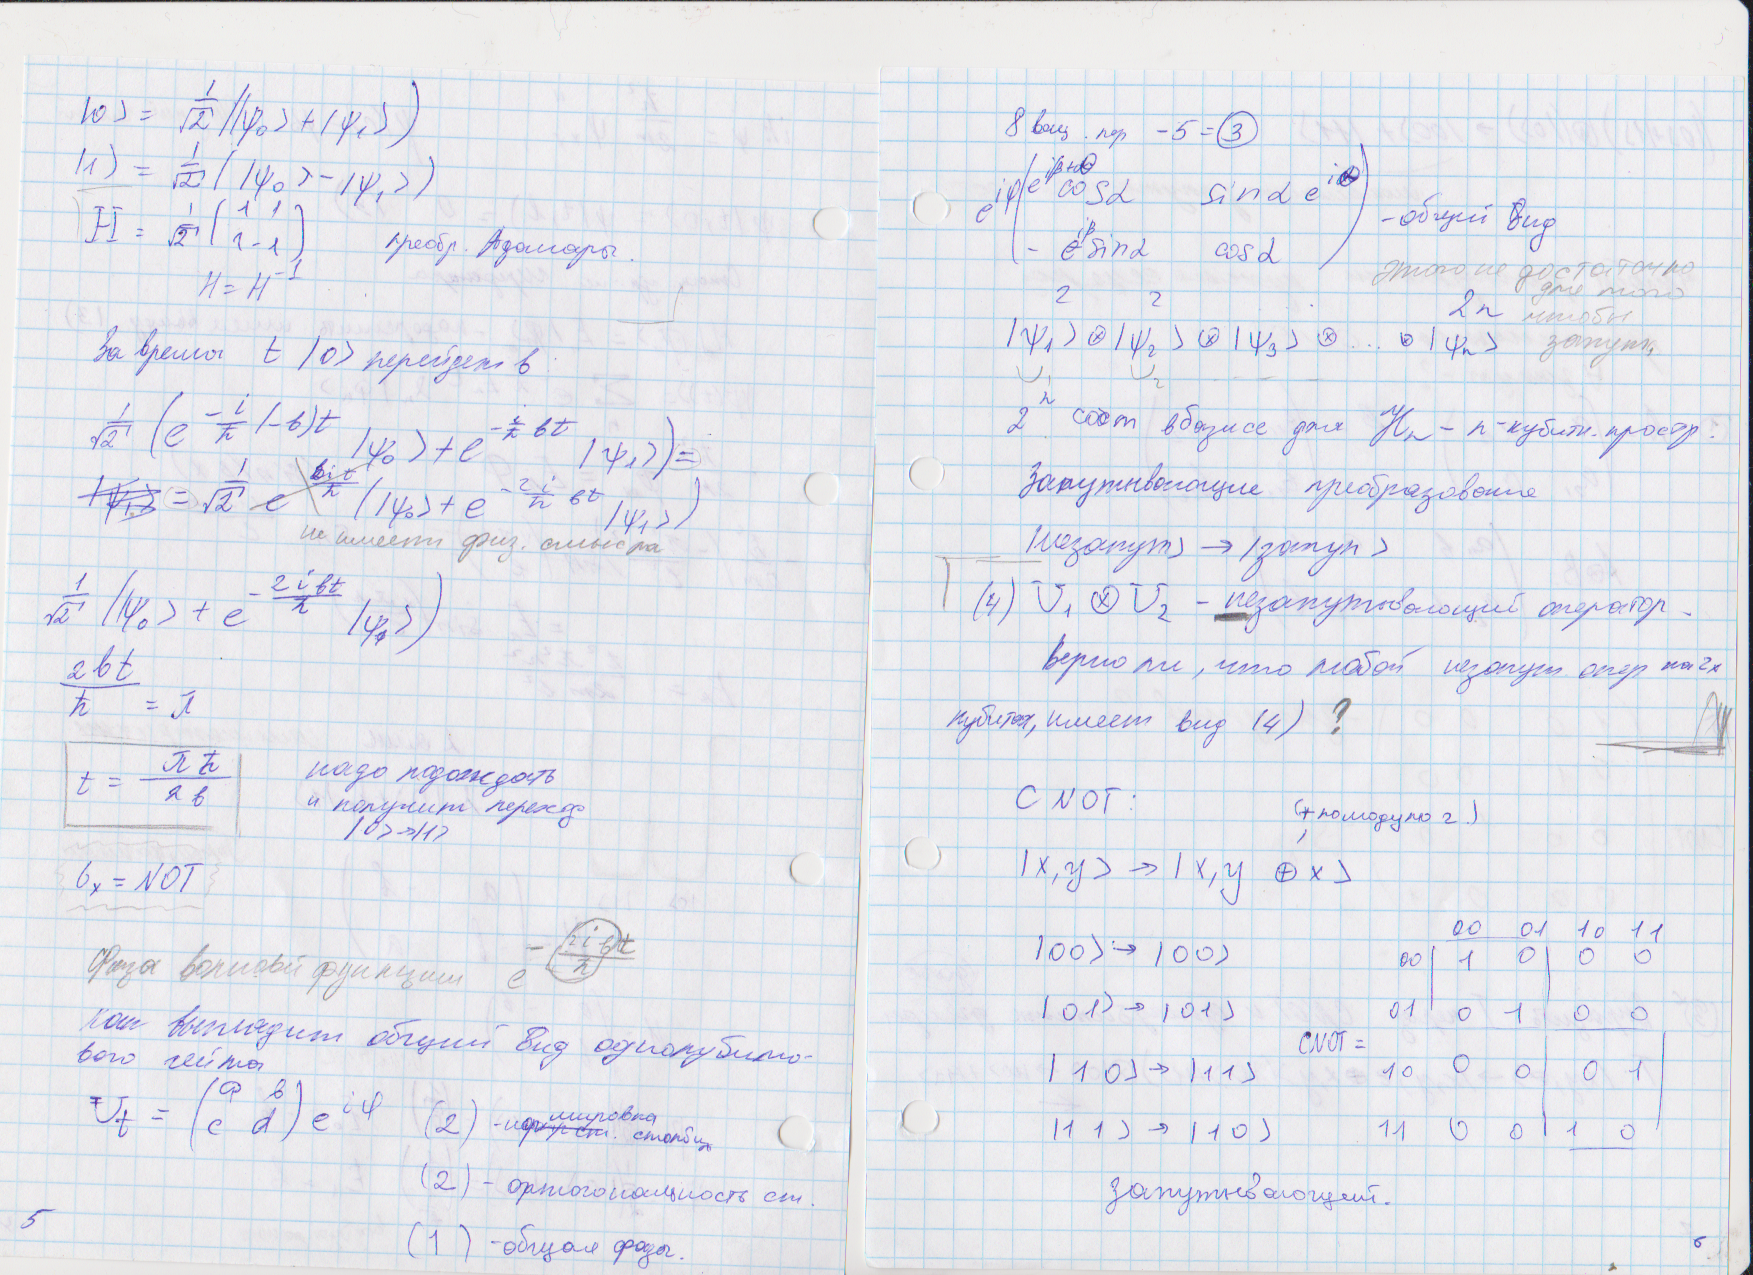 |0> = 1/√2 (|ψ₀> + |ψ₁>)
|1> = 1/√2 (|ψ₀> − |ψ₁>)
H = 1/√2 (1 1
1 −1) преобр. Адамары.
H = H⁻¹
За время t |0> перейдет в
1/√2 (e^{−i/ħ (−b)t} |ψ₀> + e^{−i/ħ bt} |ψ₁>) =
= 1/√2 e^{bit/ħ} (|ψ₀> + e^{−2i/ħ bt} |ψ₁>)
не имеет физ. смысла
1/√2 (|ψ₀> + e^{−2ibt/ħ} |ψ₁>)
2bt/ħ = π
t = πħ/2b надо подождать
и получит переход
|0> → |1>
σₓ = NOT
Фаза волновой функции e^{−2ibt/ħ}
как выглядит общий вид однокубито-
вого гейта
U_t = (a b
c d) e^{iφ} (2) - нормировка столбц
(2) - ортогональность ст.
(1) - общая фаза.
5
8 вещ. пер − 5 = 3
e^{iφ} (e^{iβ+θ} cosα sinα e^{iθ}
− e^{iβ} sinα cosα) - общий вид
этого не достаточно
для того
чтобы
запут.
2 2 2n
|ψ₁> ⊗ |ψ₂> ⊗ |ψ₃> ⊗ ... ⊗ |ψₙ>
U₁ U₂
2ⁿ сост в базисе для ℋₙ - n-кубитн. простр.
Запутывающие преобразование
|незапут> → |запут>
(4) U₁ ⊗ U₂ - незапутывающий оператор.
верно ли, что любой незапут опер на 2х
кубитах, имеет вид (4) ?
CNOT:
(+ по модулю 2.)
|x, y> → |x, y ⊕ x>
00 01 10 11
|00> → |00> 00 1 0 0 0
|01> → |01> 01 0 1 0 0
CNOT =
|10> → |11> 10 0 0 0 1
|11> → |10> 11 0 0 1 0
Запутывающий.
6